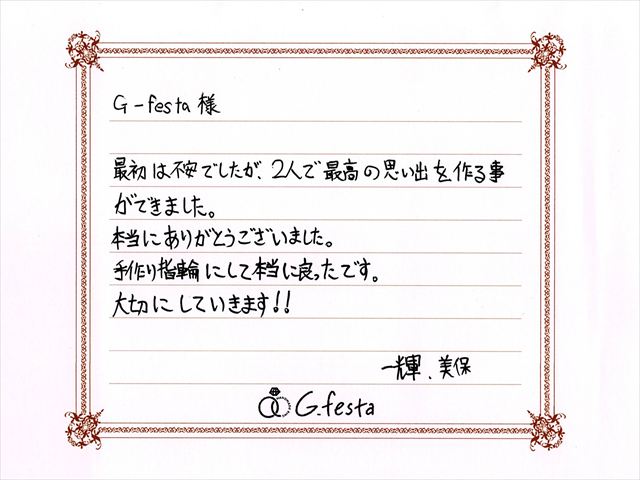 G-festa 様
最初は不安でしたが、2人で最高の思い出を作る事
ができました。
本当にありがとうございました。
手作り指輪にして本当に良ったです。
大切にしていきます!!
一輝、美保
G.festa